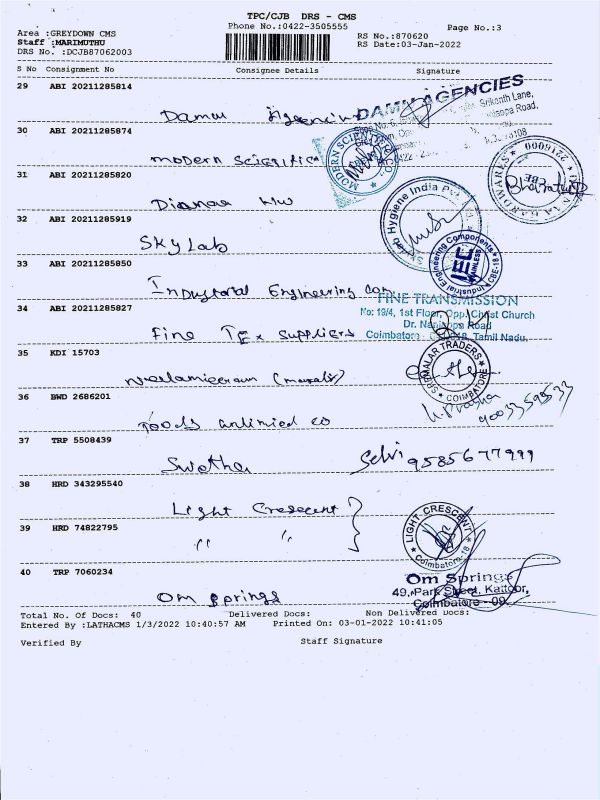 TPC/CJB DRS - CMS
Phone No.:0422-3505555
Page No.:3
Area :GREYDOWN CMS
Staff :MARIMUTHU
DRS No. :DCJB87062003
RS No.:870620
RS Date:03-Jan-2022
S No Consignment No Consignee Details Signature
29 ABI 20211285814
Damu Agencies
DAMU AGENCIES
Srikanth Lane,
30 ABI 20211285874
modern Scientific
MODERN SCIENTIFIC
31 ABI 20211285820
HARDWARES
2216600
Hygiene India Pvt
32 ABI 20211285919
SKyLab
33 ABI 20211285850
Industrial Engineering Com
IEC
Industrial Engineering Components
CBE-18
34 ABI 20211285827
Fine Tex Suppliers
FINE TRANSMISSION
No: 19/4, 1st Floor, Opp. Christ Church
Dr. Nanjappa Road
Coimbatore Tamil Nadu.
35 KDI 15703
SREEMALAR TRADERS
COIMBATORE
36 BWD 2686201
Tools unlimited co
37 TRP 5508439
Swetha
Selvi 9585677999
38 HRD 343295540
Light Crescent
39 HRD 74822795
" "
LIGHT CRESCENT
Coimbatore-18
40 TRP 7060234
Om springs
Om Springs
49, Park Street, Kattoor,
Coimbatore - 09.
Total No. Of Docs: 40 Delivered Docs: Non Delivered Docs:
Entered By :LATHACMS 1/3/2022 10:40:57 AM Printed On: 03-01-2022 10:41:05
Verified By Staff Signature